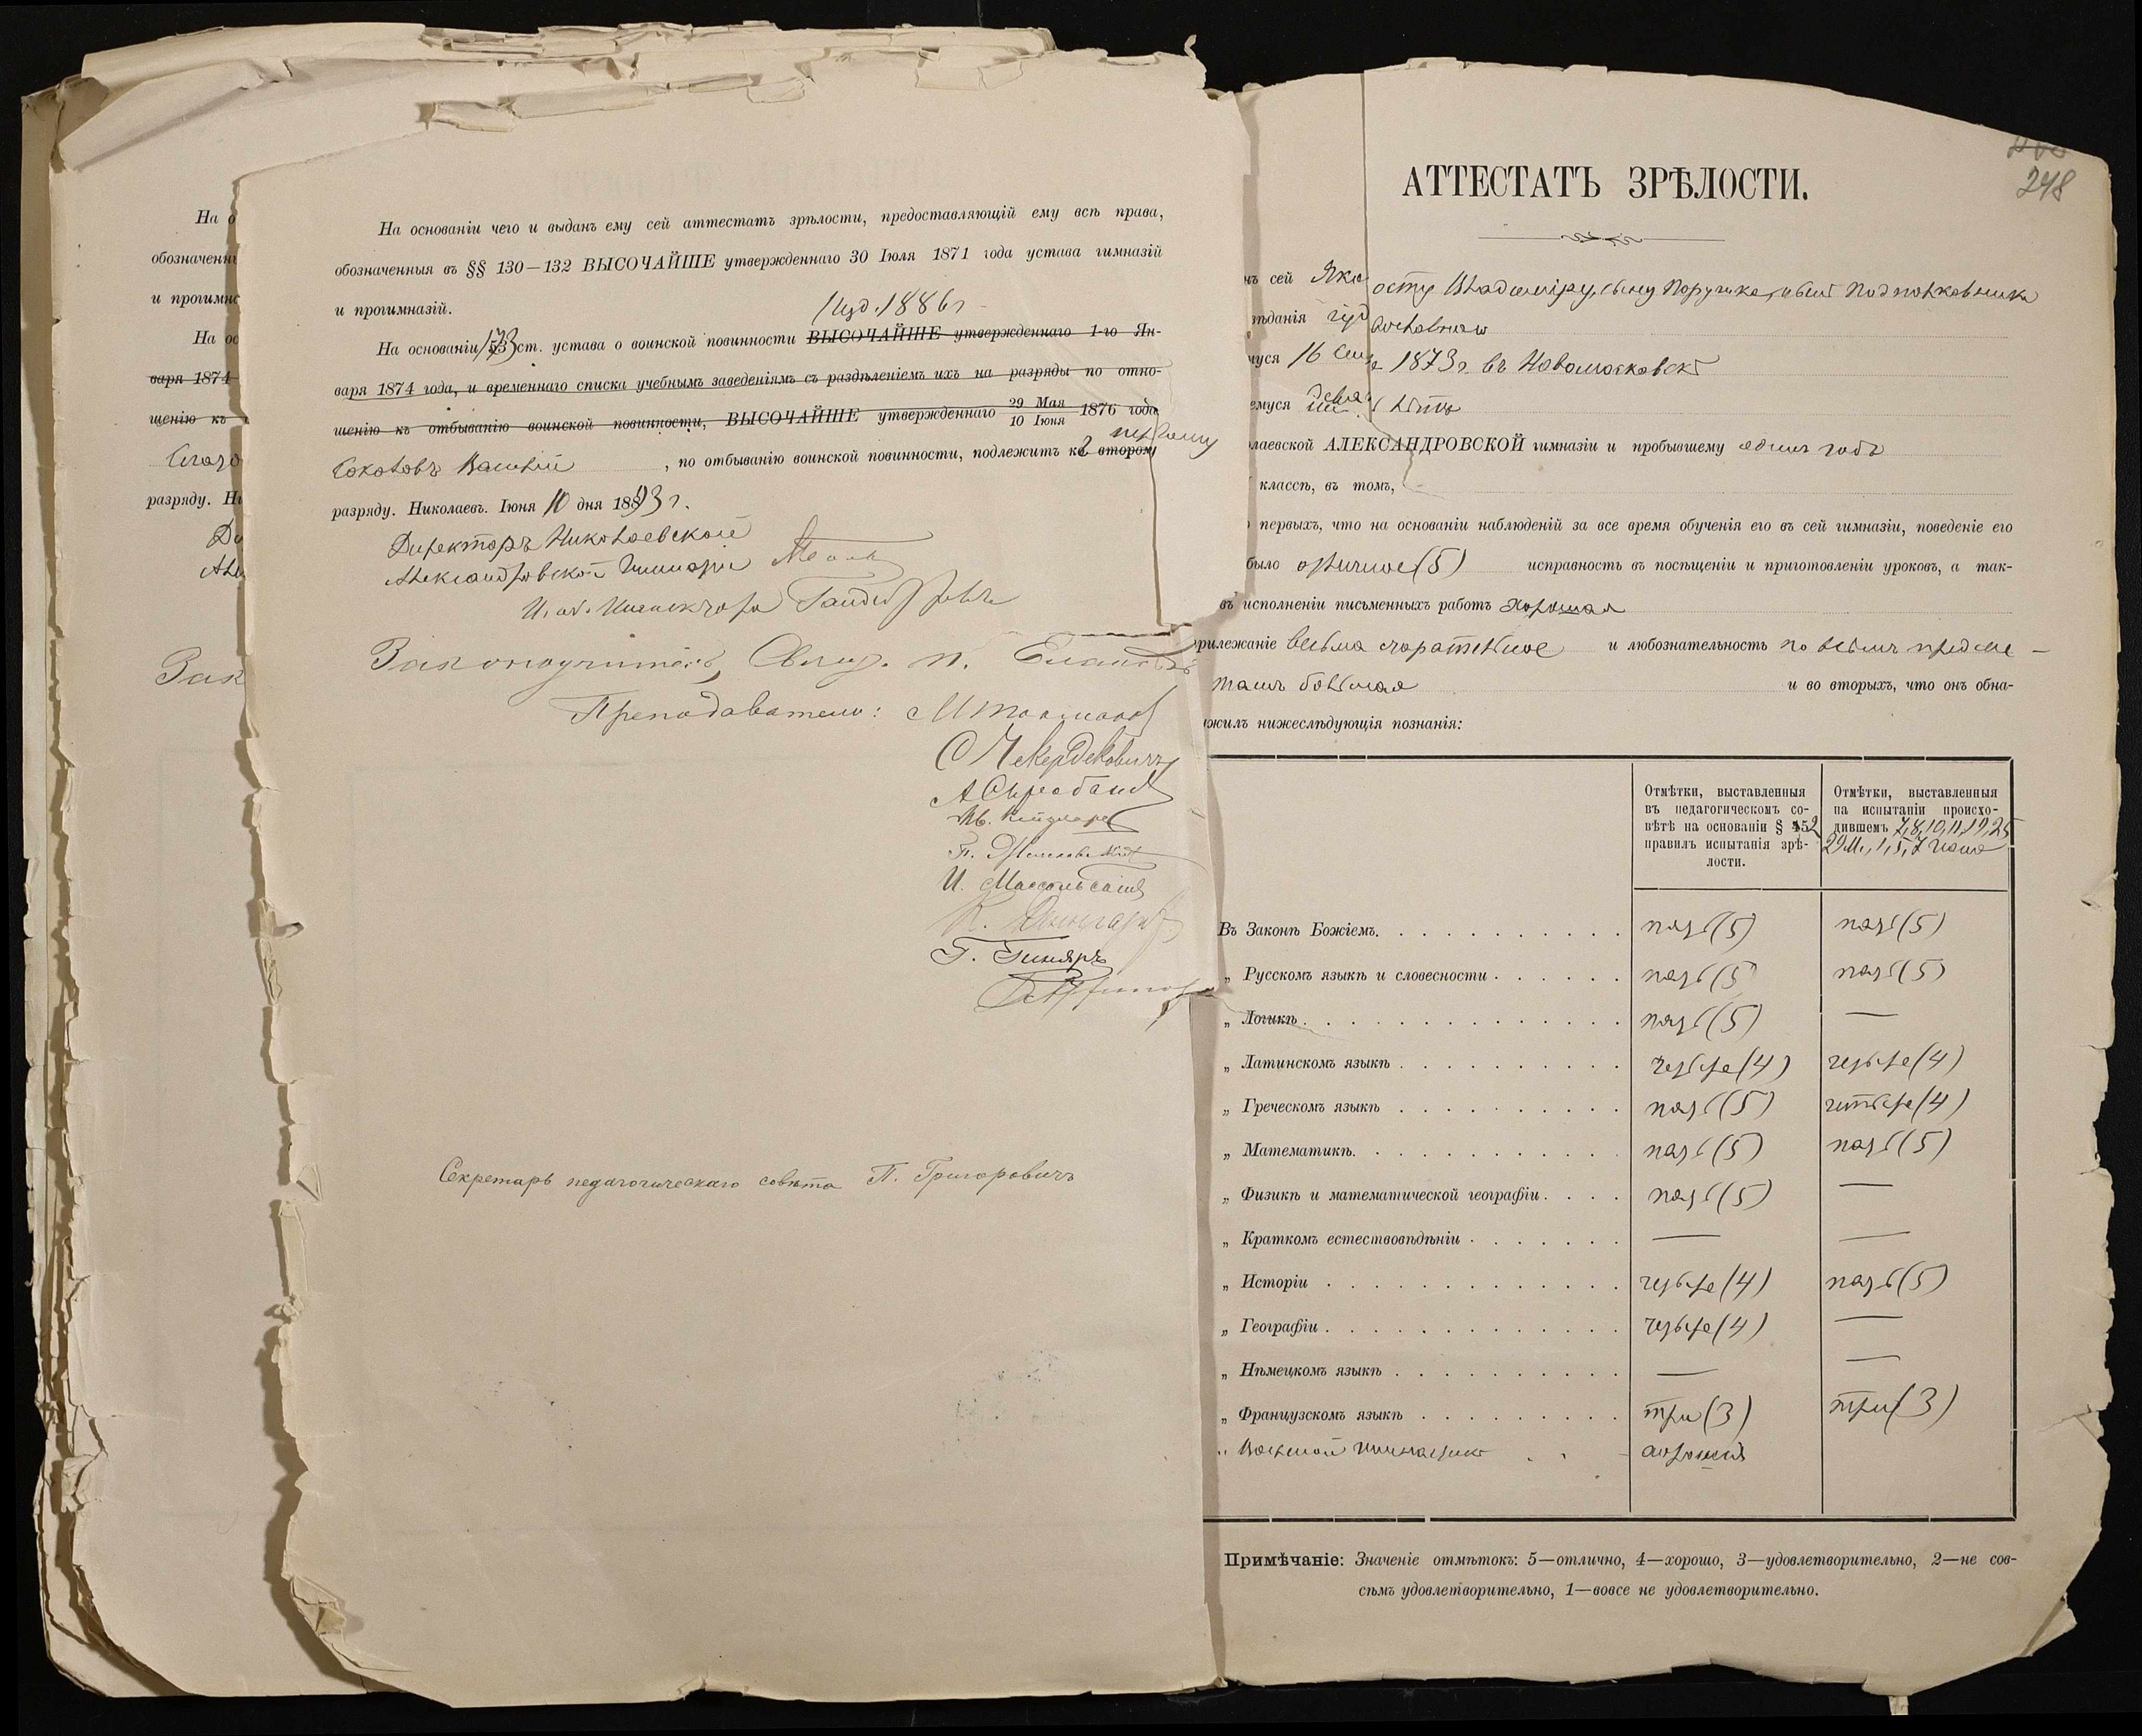 На о
обозначенны
и прогимна
На ос
варя 1874
щенію къ
разряду. Ни
До
Зак
На основаніи чего и выданъ ему сей аттестатъ зрѣлости, предоставляющій ему всѣ права,
обозначенныя въ §§ 130—132 ВЫСОЧАЙШЕ утвержденнаго 30 Іюля 1871 года устава гимназій
и прогимназій.
изд. 1886 г
На основаніи 173 ст. устава о воинской повинности ВЫСОЧАЙШЕ утвержденнаго 1-го Ян-
варя 1874 года, и временнаго списка учебнымъ заведеніямъ съ раздѣленіемъ ихъ на разряды по отно-
шенію къ отбыванію воинской повинности, ВЫСОЧАЙШЕ утвержденнаго 29 Мая / 10 Іюня 1876 года
первому
Соколовъ Василій , по отбыванію воинской повинности, подлежитъ къ второму
разряду. Николаевъ. Іюня 10 дня 1893 г.
Директоръ Николаевской
Александровской Гимназіи
И. об. Инспектора
Законоучитель, Свящ. п.
Преподаватели:
С Чекердековичъ
Г. Гиндръ
Секретарь педагогическаго совѣта П. Григоровичъ
248
АТТЕСТАТЪ ЗРѢЛОСТИ.
нъ сей Якс осту Владиміру, сыну Поручика, нынѣ Подполковника
ѣданія
уся 16 1873 г. въ Новомосковскѣ
емуся лѣтъ
лаевской АЛЕКСАНДРОВСКОЙ гимназіи и пробывшему одинъ годъ
классѣ, въ томъ,
первыхъ, что на основаніи наблюденій за все время обученія его въ сей гимназіи, поведеніе его
было отличное (5) исправность въ посѣщеніи и приготовленіи уроковъ, а так-
въ исполненіи письменныхъ работъ хорошая
рилежаніе весьма старательное и любознательность по всѣмъ предме-
тамъ большая и во вторыхъ, что онъ обна-
жилъ нижеслѣдующія познанія:
Отмѣтки, выставленныя
въ педагогическомъ со-
вѣтѣ на основаніи § 52
правилъ испытанія зрѣ-
лости.
Отмѣтки, выставленныя
на испытаніи происхо-
дившемъ 7, 8, 10, 11, 19, 25
29 М., 1, 5, 7 Іюня
Въ Законѣ Божіемъ. пять (5) пять (5)
„ Русскомъ языкѣ и словесности пять (5) пять (5)
„ Логикѣ пять (5) —
„ Латинскомъ языкѣ четыре (4) четыре (4)
„ Греческомъ языкѣ пять (5) четыре (4)
„ Математикѣ. пять (5) пять (5)
„ Физикѣ и математической географіи пять (5) —
„ Краткомъ естествовѣдѣніи — —
„ Исторіи четыре (4) пять (5)
„ Географіи четыре (4) —
„ Нѣмецкомъ языкѣ — —
„ Французскомъ языкѣ три (3) три (3)
„ Военной гимнастикѣ хорошія
Примѣчаніе: Значеніе отмѣтокъ: 5—отлично, 4—хорошо, 3—удовлетворительно, 2—не сов-
сѣмъ удовлетворительно, 1—вовсе не удовлетворительно.